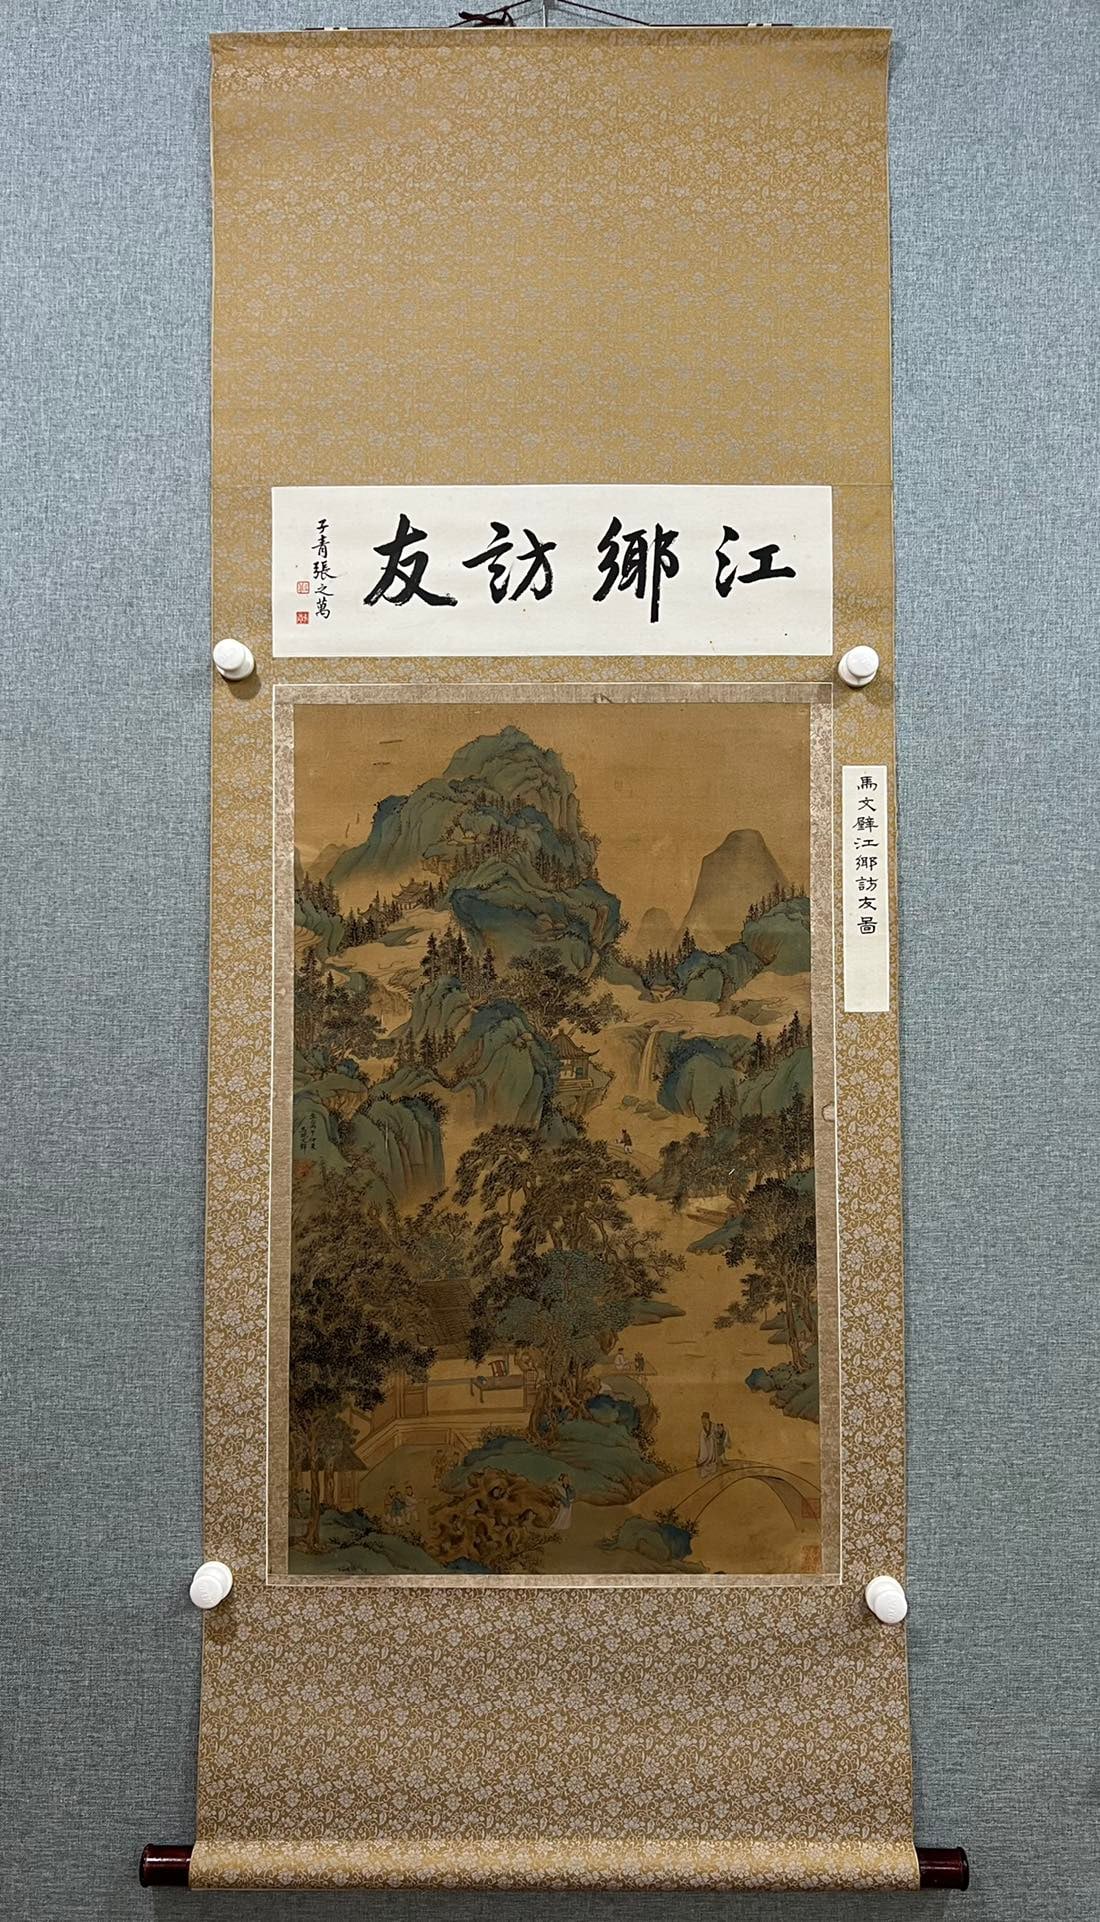 江鄉訪友
子青張之萬
馬文璧江鄉訪友圖